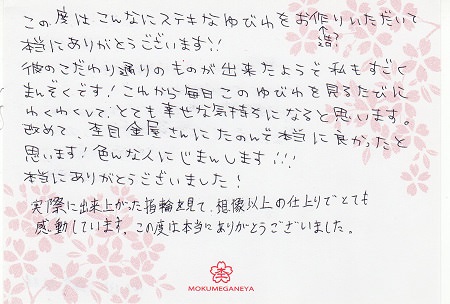 この度はこんなにステキなゆびわをお作りいただいて
造?
本当にありがとうございます!!
彼のこだわり通りのものが出来たようで私もすごく
まんぞくです!これから毎日このゆびわを見るたびに
わくわくして、とても幸せな気持ちになると思います。
改めて、杢目金屋さんにたのんで本当に良かったと
思います!色んな人にじまんします!!!
本当にありがとうございました!
実際に出来上がった指輪を見て、想像以上の仕上りでとても
感動しています。この度は本当にありがとうございました。
杢
MOKUMEGANEYA